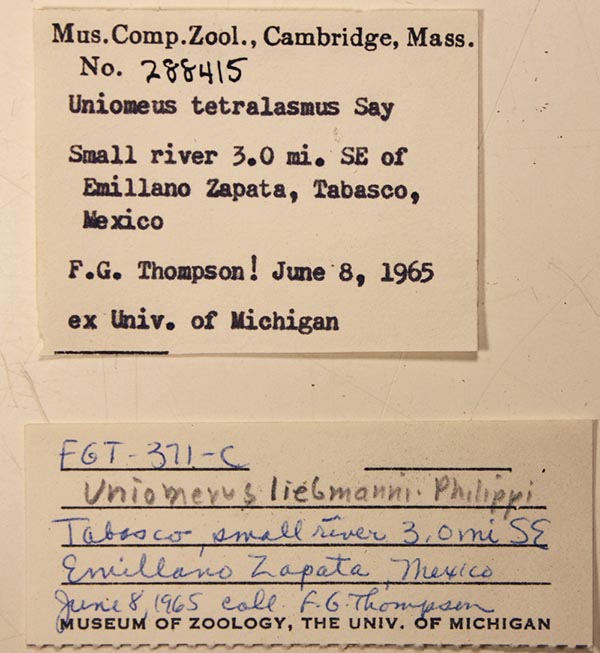 Mus.Comp.Zool., Cambridge, Mass.
No. 288415
Uniomeus tetralasmus Say
Small river 3.0 mi. SE of
Emillano Zapata, Tabasco,
Mexico
F.G. Thompson! June 8, 1965
ex Univ. of Michigan
FGT-371-C
Uniomerus liebmanni. Philippi
Tabasco, small river 3.0mi SE
Emillano Zapata, Mexico
June 8, 1965 coll. F.G. Thompson
MUSEUM OF ZOOLOGY, THE UNIV. OF MICHIGAN